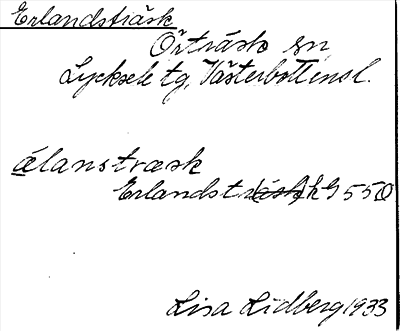 Erlandsträsk
Örträsk sn
Lycksele tg, Västerbottensl.
älanstræsk
Erlandstr
Lisa Lidberg 1933